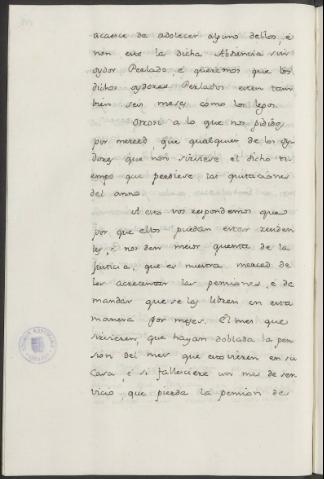 acaesce de adolecer alguno dellos, é
non esto la dicha Abdencia sin
oydor Perlado, é queremos que los
dichos oydores Perlados esten tam
bien seis meses como los legos.
Otrosi a lo que nos pidido
por merced que qualquier de los oy
dores que non sirviese el dicho ti
empo que perdiese las quitaciones
del anno.
A esto vos respondemos que
por que ellos puedan estar residen
tes, é nos den meior quenta de la
Justicia, que es nuestra merced de
les acrecentar las pensiones, é de
mandar que se les libren en esta
manera por meses. El mes que
sirvieren, que hayan doblada la pen
sion del mes que estovieren en su
Casa, é si fallesciere un mes de ser
vicio, que pierda la pension de